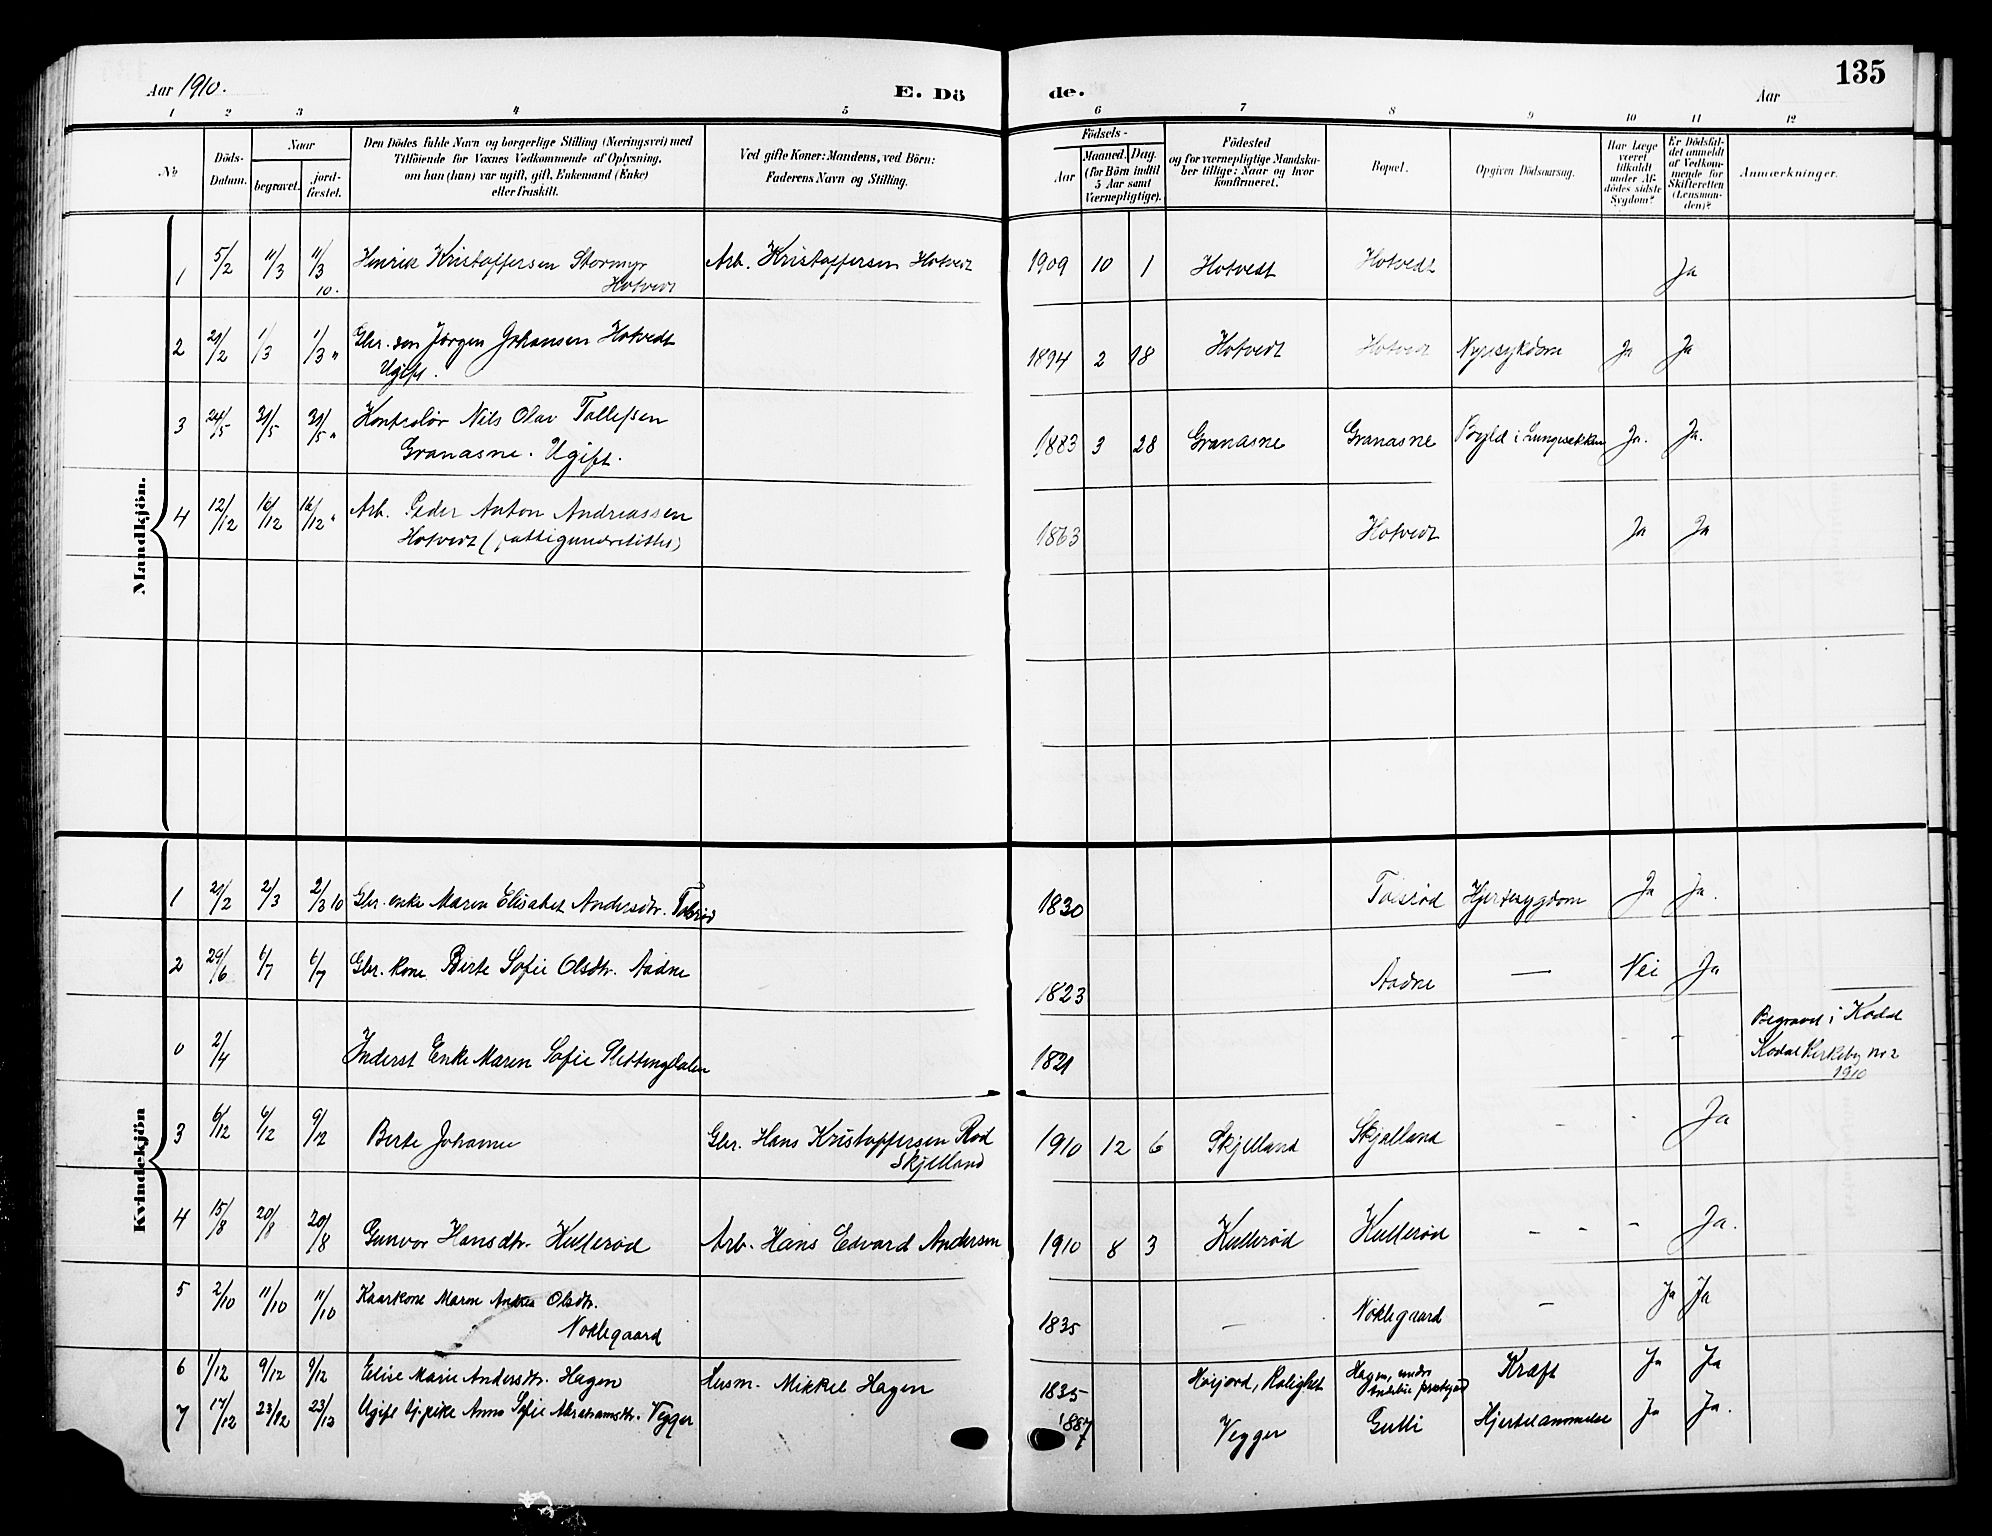 135
Aar 1910.
E. Dö
de.
Aar
1 2 3 4 5 6 7 8 9 10 11 12
No
Döds-Datum.
Naar
begravet.
jord-fæstet.
Den Dödes fulde Navn og borgerlige Stilling (Næringsvei) med
Tilföiende for Voxnes Vedkommende af Oplysning,
om han (hun) var ugift, gift, Enkemand (Enke)
eller fraskilt.
Ved gifte Koner: Mandens, ved Börn:
Faderens Navn og Stilling.
Födsels-
Aar
Maaned. Dag.
(for Börn indtil
5 Aar samt
Værnepligtige).
Födested
og for værnepligtige Mandska-
ber tillige: Naar og hvor
konfirmeret.
Bopæl.
Opgiven Dödsaarsag.
Har Læge
været
tilkaldt
under Af-
dödes sidste
Sygdom?
Er Dödsfal-
det anmeldt
af Vedkom-
mende for
Skifteretten
(Lensman-
den)?
Anmærkninger.
Mandkjön.
1 5/2 11/3 11/3 10. Henrik Kristoffersen Stormyr Hotvedt Arb. Kristoffersen Hotvedt 1909 10 1 Hotvedt Hotvedt Ja
2 21/2 1/3 1/3 " Gbr. søn Jørgen Johansen Hotvedt Ugift. 1894 2 18 Hotvedt Hotvedt Nyresykdom Ja Ja
3 24/5 31/5 31/5 " Kontrolør Nils Olav Tollefsen Granasne. Ugift. 1883 3 28 Granasne Granasne Byld i Lungesækken Ja. Ja.
4 12/12 16/12 16/12 " Arb. Peder Anton Andreassen Hotvedt (fattigunderstøttet) 1863 Hotvedt Ja Ja
Kvindekjön
1 21/2 2/3 2/3 10 Gbr. enke Maren Elisabet Andersdtr. Tolsrød 1830 Tolsrød Hjertesygdom Ja Ja.
2 29/6 6/7 6/7 Gbr. kone Berte Sofie Olsdtr. Aadne 1823 Aadne — Nei Ja
0 2/4 Inderst Enke Maren Sofie Slettingdalen 1821 - - Begravet i Kodal
Kodal Kirkeby nr 2
1910
3 6/12 6/12 9/12 Berte Johanne Gbr. Hans Kristoffersen Rød Skjelland 1910 12 6 Skjelland Skjelland - - Ja
4 15/8 20/8 20/8 Gunvor Hansdtr. Kullerød Arb. Hans Edvard Andersen 1910 8 3 Kullerød Kullerød - - - Ja.
5 2/10 11/10 11/10 Kaarkone Maren Andrea Olsdtr. Noklegaard 1835 — Noklegaard — Ja Ja
6 1/12 9/12 9/12 Elise Marie Andersdtr. Hagen Husm. Mikkel Hagen 1835 Høijord, Rolighet Hagen, under Andebu præstegaard Kræft Ja Ja
7 17/12 23/12 23/12 Ugift tj. pike Anna Sofie Abrahamsdtr. Vegger 1887 Vegger Gulli Hjertelammelse Ja Ja.